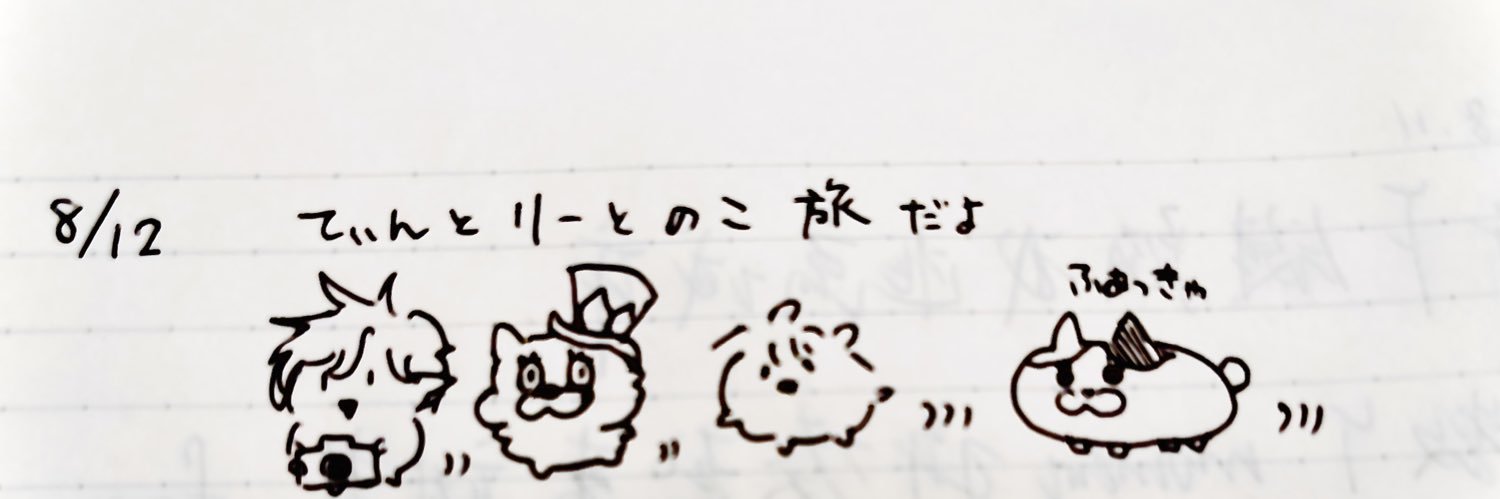 8/12 てぃんとりーとのこ旅だよ
ふぁっきゅ